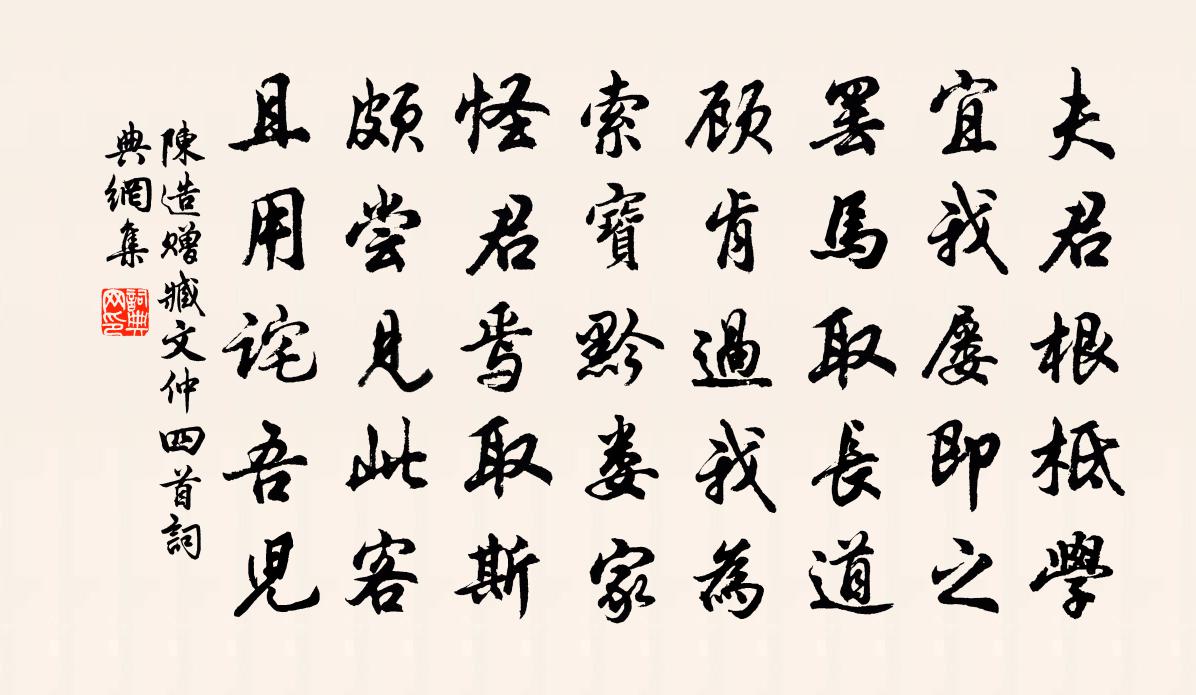 夫君根柢學
宜我屡即之
罢馬取長道
顧肯過我為
索寶黔婁家
怪君焉取斯
頗尝見此客
且用詫吾児
陳造赠臧文仲四首詞
典網集
詞典
网印